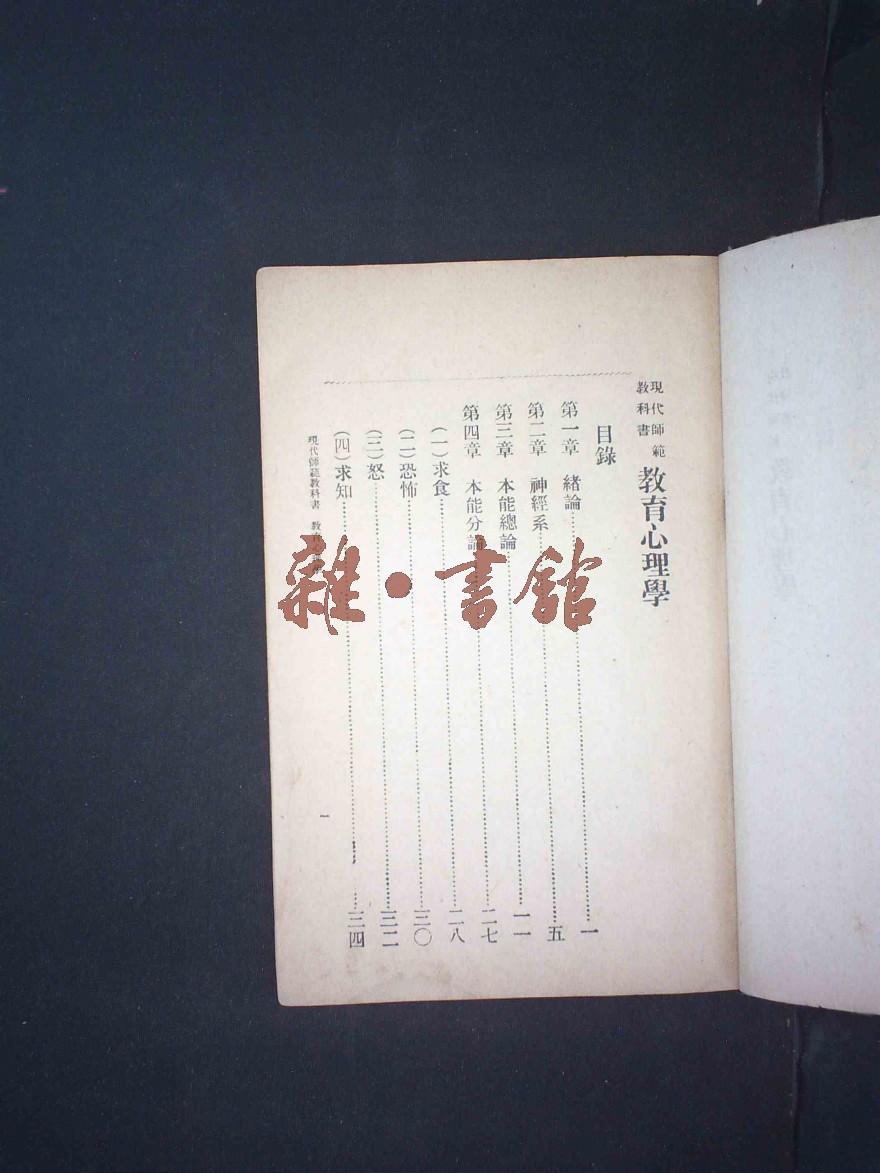 現代師範
教科書
教育心理學
目錄
第一章 緒論 一
第二章 神經系 五
第三章 本能總論 一一
第四章 本能分論 二七
(一)求食 二八
(二)恐怖 三〇
(三)怒 三二
(四)求知 三四
現代師範教科書 教育心
一
雜·書館